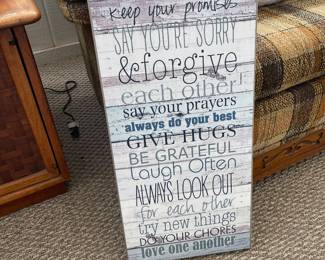 keep your promises
SAY YOU'RE SORRY
& forgive
each other!
say your prayers
always do your best
GIVE HUGS
BE GRATEFUL
Laugh Often
ALWAYS LOOK OUT
for each other
try new things
DO YOUR CHORES
love one another